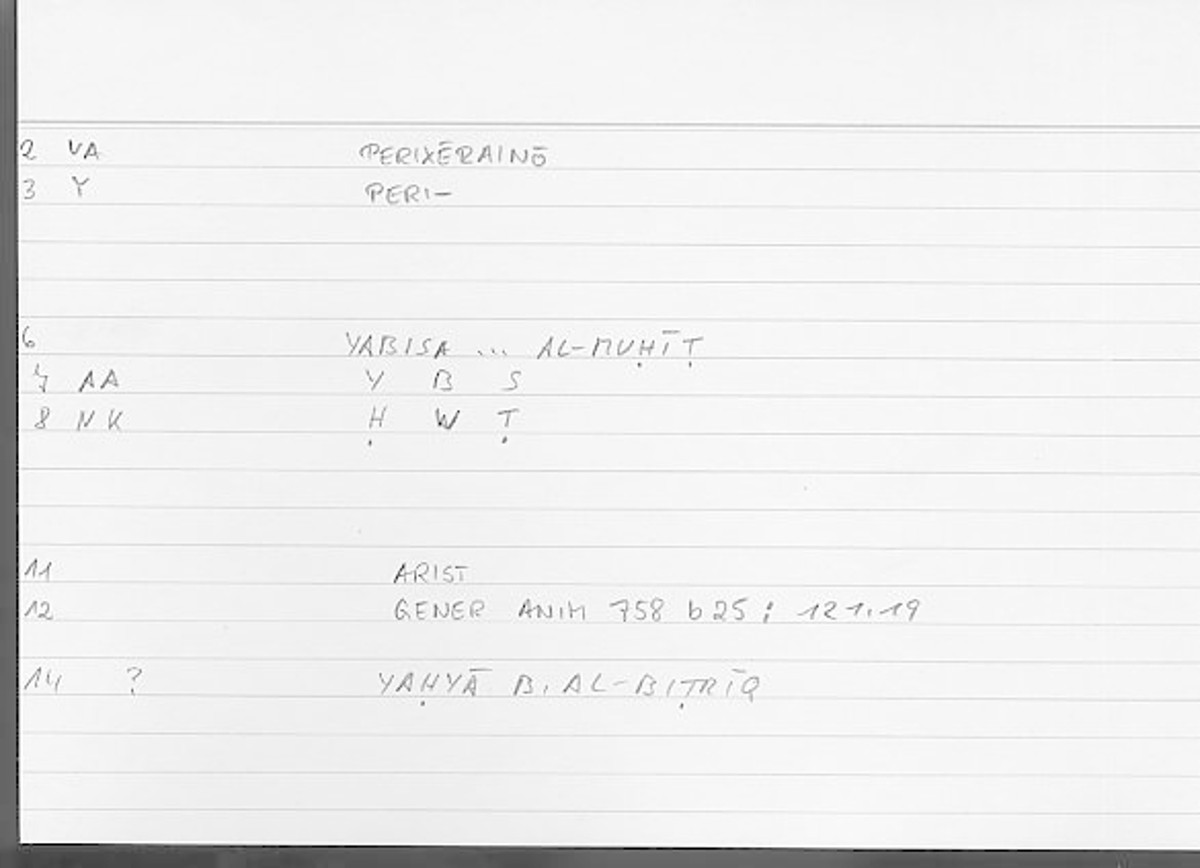 2 VA PERIXĒRAINŌ
3 Y PERI-
6 YABISA ... AL-MUḤĪṬ
7 AA Y B S
8 NK Ḥ W Ṭ
11 ARIST
12 GENER ANIM 758 b25; 121.19
14 ? YAḤYĀ B. AL-BIṬRĪQ